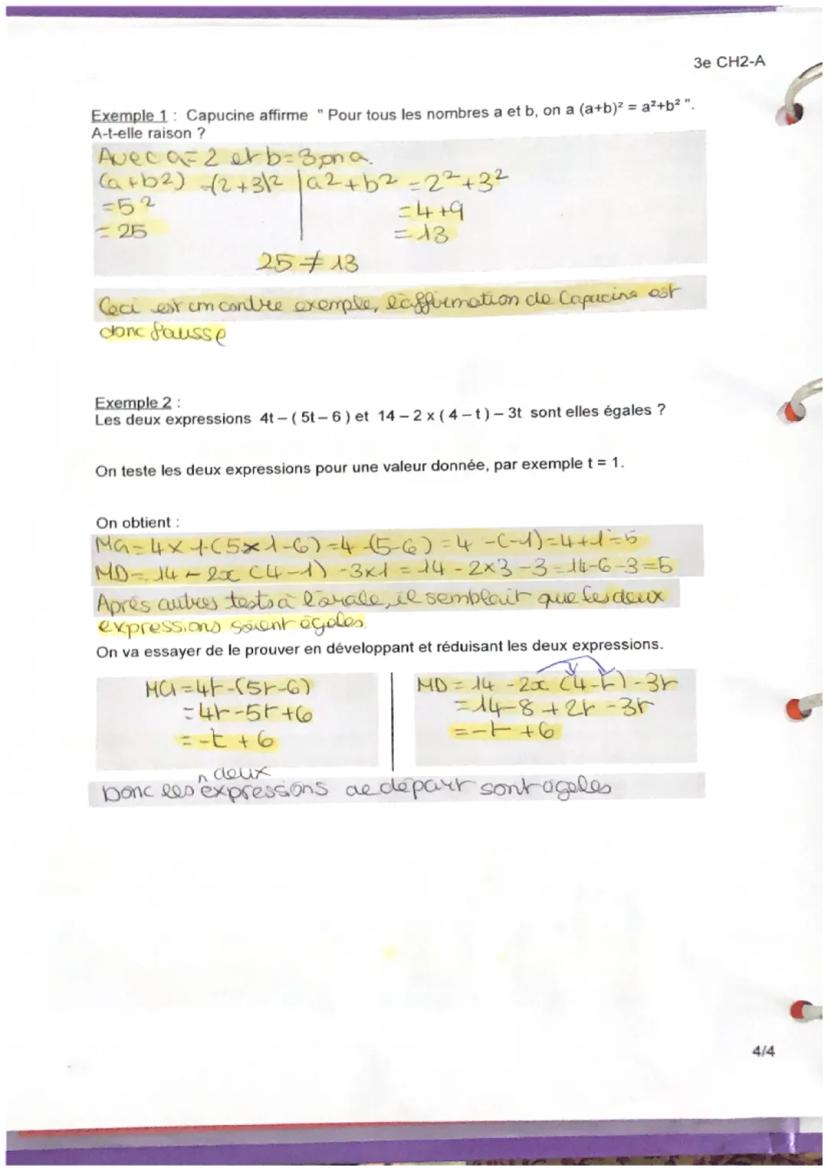 3e CH2-A
Exemple 1 : Capucine affirme " Pour tous les nombres a et b, on a (a+b)² = a²+b² ".
A-t-elle raison ?
Avec a=2 et b=3 on a.
(a+b2) =(2+3)2 | a2+b2 = 2²+3²
=5² =4+9
= 25 = 13
25 ≠ 13
Ceci est un contre exemple, l'affirmation de Capucine est
donc fausse
Exemple 2 :
Les deux expressions 4t – ( 5t – 6 ) et 14 – 2 x ( 4 – t ) – 3t sont elles égales ?
On teste les deux expressions pour une valeur donnée, par exemple t = 1.
On obtient :
MG = 4 x 1-(5x1-6) = 4 -(5-6) = 4 -(-1) = 4+1 = 5
MD = 14 - 2x (4-1) - 3x1 = 14 - 2x3 - 3 = 14-6-3 = 5
Après autres tests à l'orale, il semblait que les deux
expressions soient égales.
On va essayer de le prouver en développant et réduisant les deux expressions.
MG = 4t-(5t-6) MD = 14 - 2x (4-t) - 3t
= 4t-5t+6 = 14-8+2t-3t
= -t + 6 = -t + 6
deux
Donc les expressions de départ sont égales
4/4